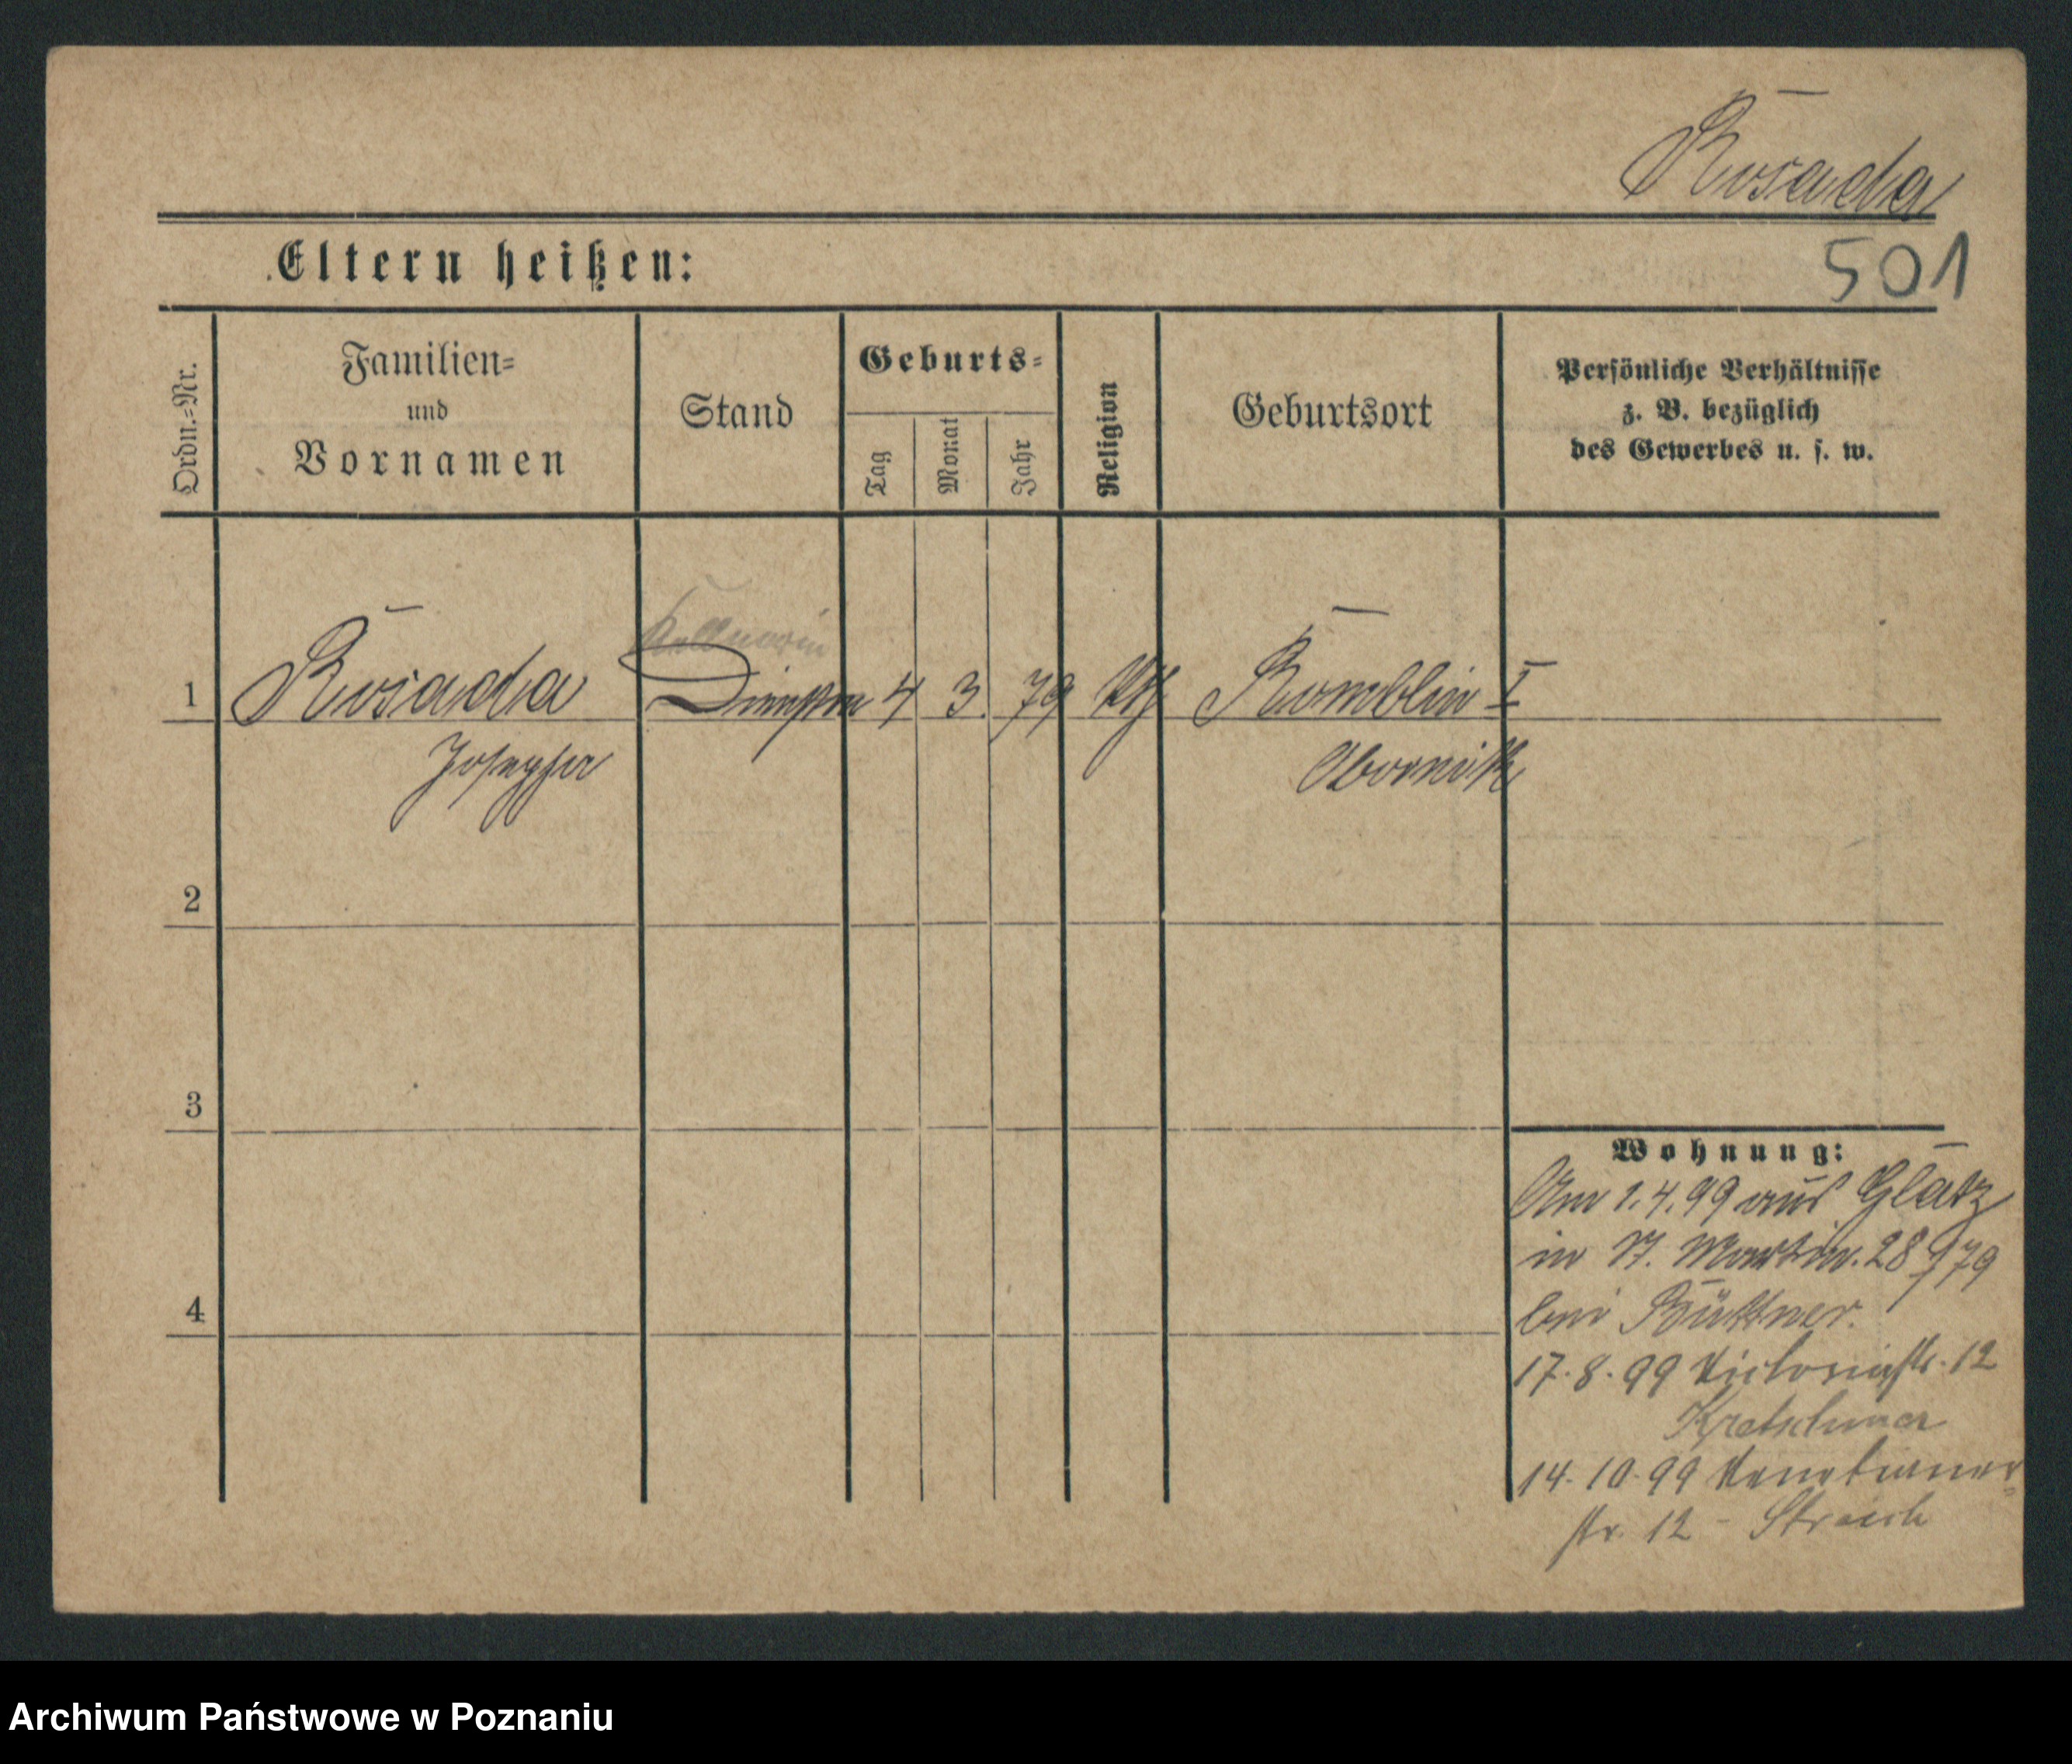 Rosada
501
Eltern heißen:
Ordn.=Nr.
Familien=
und
Vornamen
Stand
Geburts=
Tag
Monat
Jahr
Religion
Geburtsort
Persönliche Verhältnisse
z. B. bezüglich
des Gewerbes u. s. w.
Kellnerin
1 Rosada 4 3. 79 kth I
Josepha Obornik
2
3
4
Wohnung:
Am 1.4.99 aus Glatz
in St. Martin. 28
bei Büttner.
17.8.99 Victoriastr. 12
Kretschmer
14.10.99 Venetianer=
str. 12 -
Archiwum Państwowe w Poznaniu